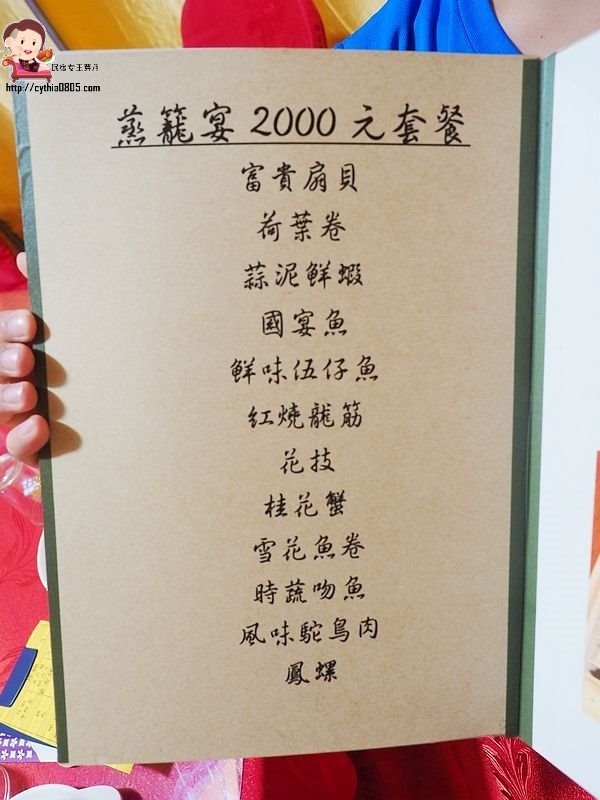 民宿女王芽月
http://cythia0805.com
蒸籠宴 2000 元套餐
富貴扇貝
荷葉卷
蒜泥鮮蝦
國宴魚
鮮味伍仔魚
紅燒龍筋
花技
桂花蟹
雪花魚卷
時蔬吻魚
風味駝鳥肉
鳳螺